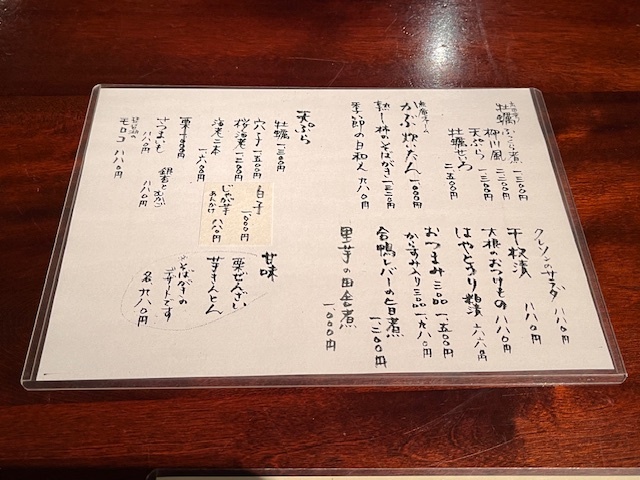 牡蠣ふっくら煮 一三〇〇円
柳川風 二二〇〇円
天ぷら 一三〇〇円
牡蠣せいろ 二五〇〇円
かぶ炊いたん 一〇〇〇円
熟し柿のそばがき 一三二〇円
季節の白和え 九八〇円
クレソンのサラダ 八八〇円
千枚漬 八八〇円
大根のおつけもの 八八〇円
はやとうり粕漬 六六〇円
おつまみ三品 一五〇〇円
からすみ入り三品 一九八〇円
合鴨レバーの旨煮 一二〇〇円
里芋の田舎煮 一〇〇〇円
天ぷら
牡蠣 一三〇〇円
穴子 一五〇〇円
桜海老 一三〇〇円
海老二本 一六〇〇円
栗
さつまいも 八八〇円
銀杏とむかご 八八〇円
モロコ 八八〇円
白子 一〇〇〇円
じゃが芋 あんかけ 八八〇円
甘味
栗ぜんざい
芋きんとん
そばがきの
デザートです
各九八〇円